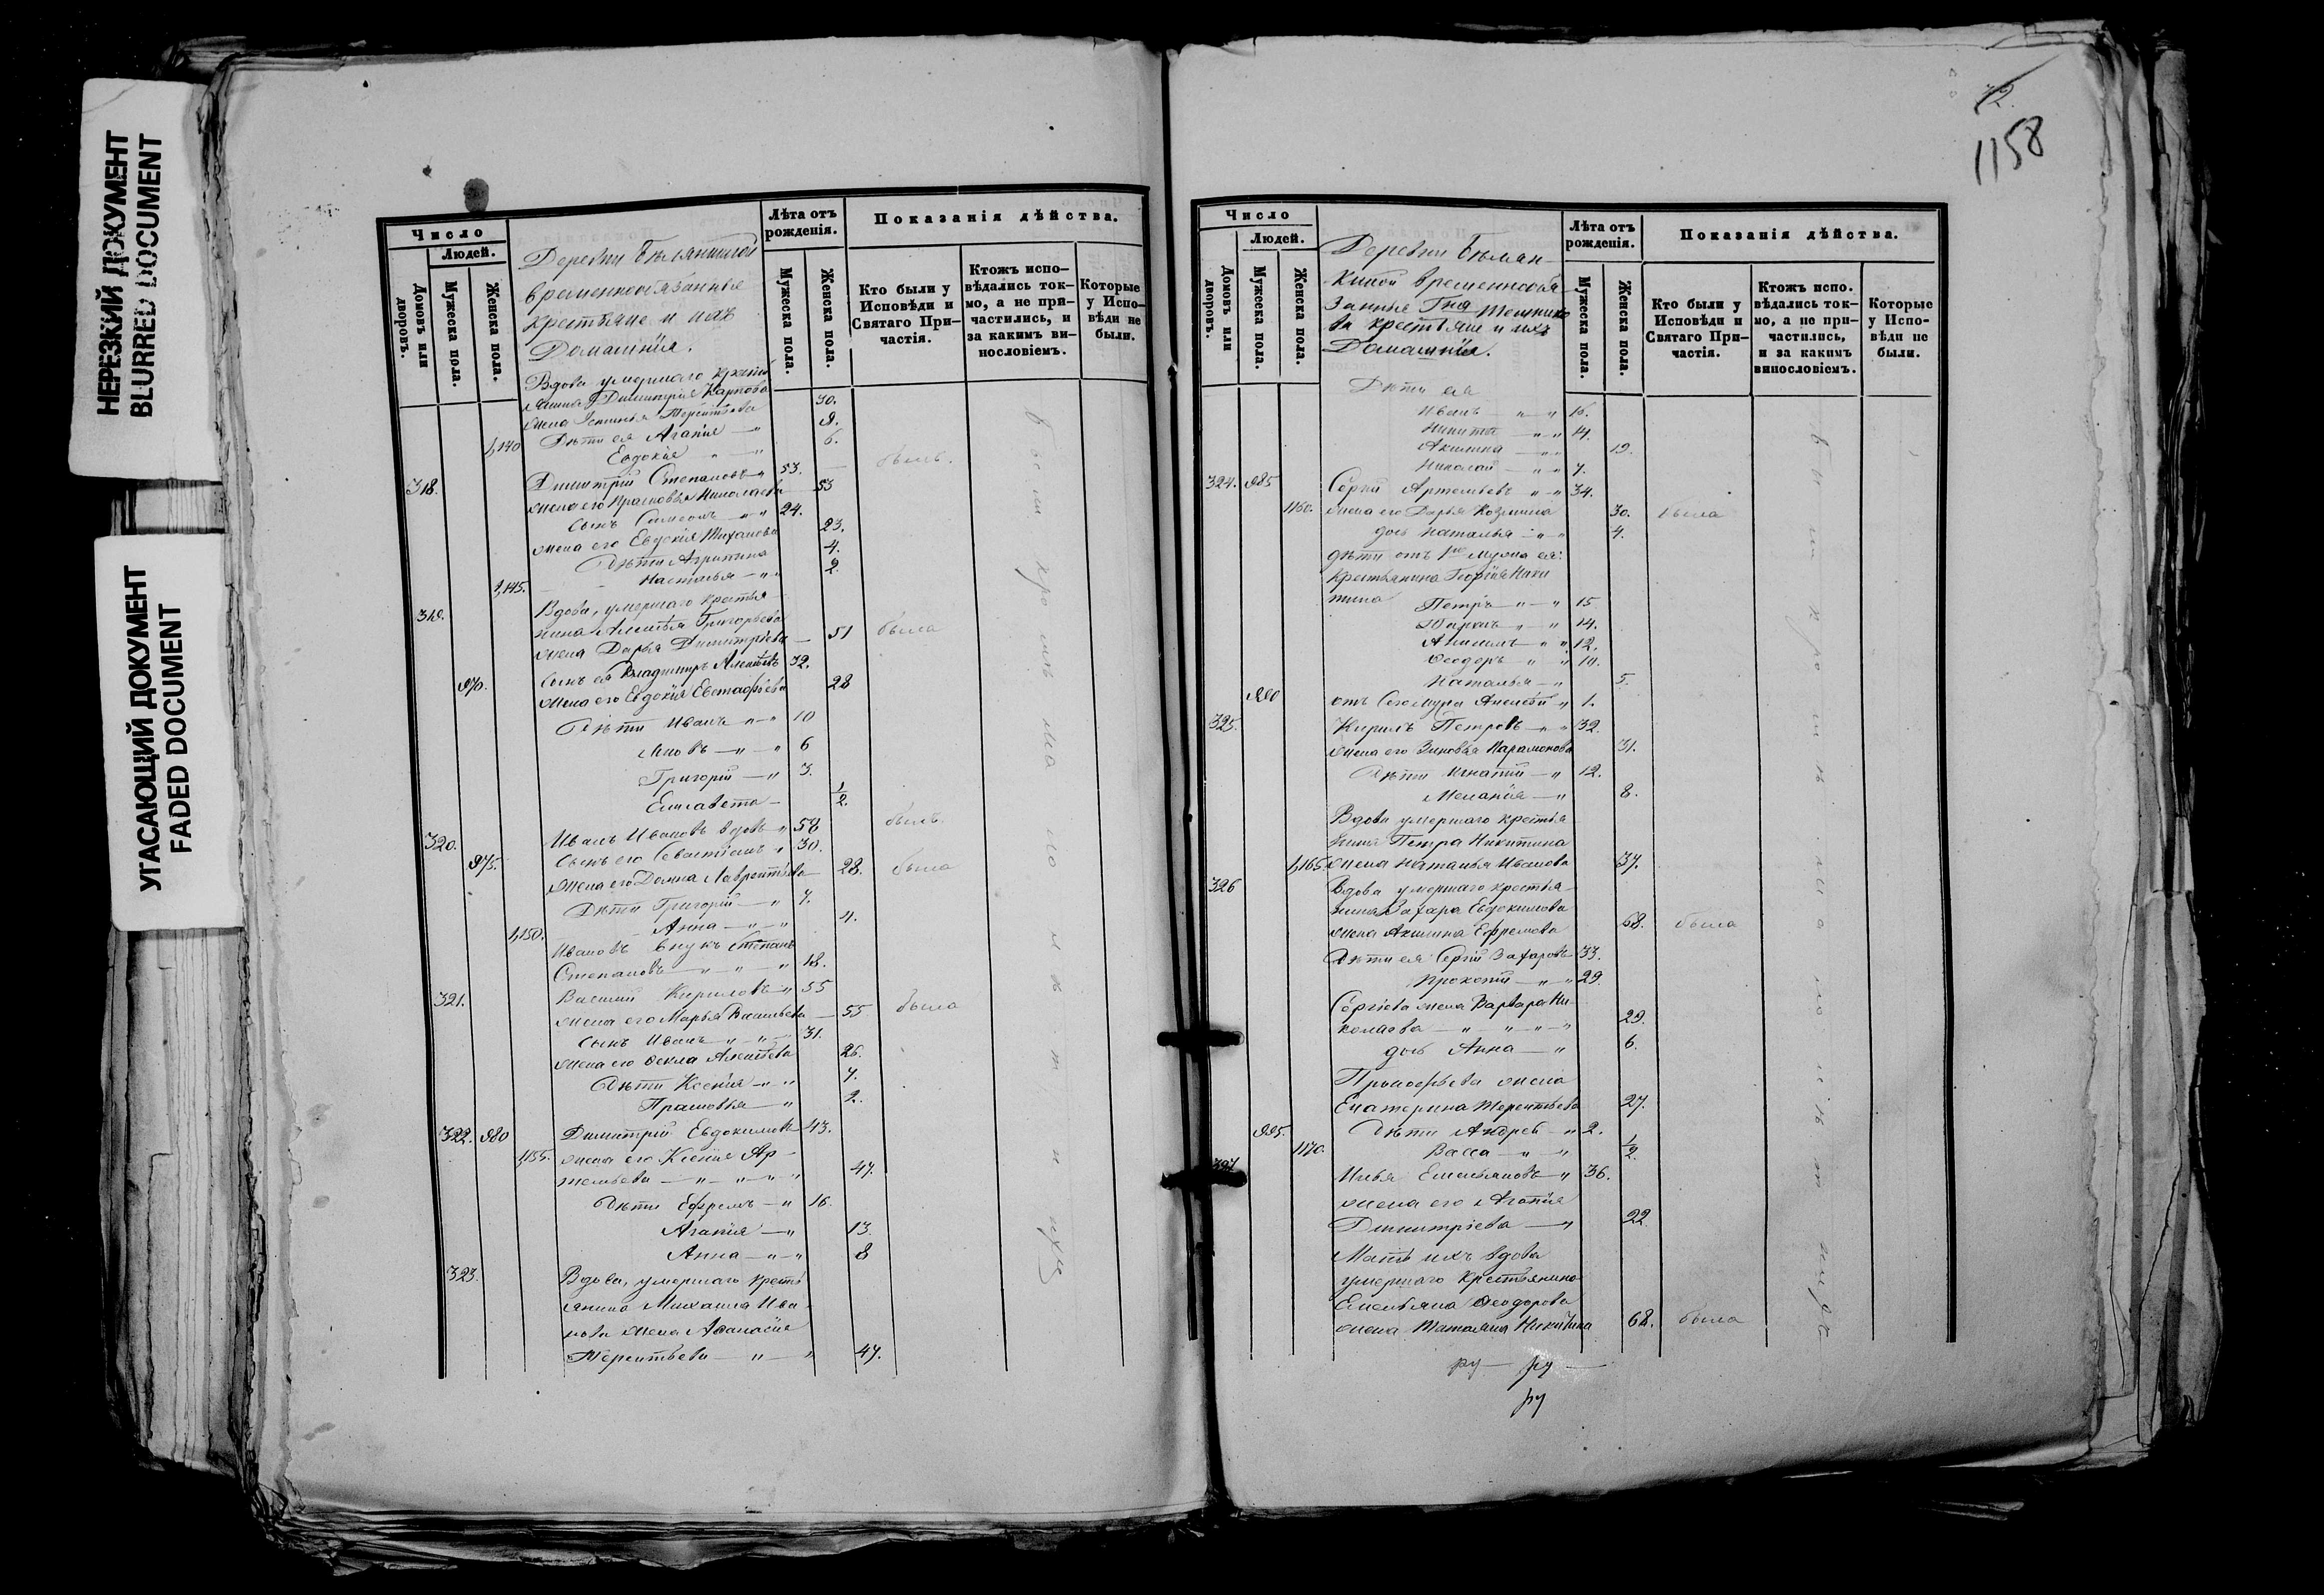 НЕРЕЗКИЙ ДОКУМЕНТ
BLURRED DOCUMENT
УГАСАЮЩИЙ ДОКУМЕНТ
FADED DOCUMENT
Число
Людей.
Домовъ или дворовъ.
Мужеска пола.
Женска пола.
Деревни
временнообязанные
крестьяне и ихъ
Домашнія.
Лѣта отъ рожденія.
Мужеска пола.
Женска пола.
Показанія дѣйства.
Кто были у Исповѣди и Святаго При-частія.
Ктожъ испо-вѣдались ток-мо, а не при-частились, и за какимъ ви-нословіемъ.
Которые у Испо-вѣди не были.
Вдова умершаго кресть
янина Димитрія Карпова
жена Устинья Терентьева 30.
1,140 Дѣти ея Агапія 9.
Евдокія 6.
318. Димитрій Степановъ 53. былъ.
жена его Прасковья Николаева 53
сынъ Симеонъ 24.
жена его Евдокія Тихонова 23.
Дѣти Агрипина 4.
1,145. Настасья 2.
319. Вдова, умершаго крестья
нина Алексѣя Григорьева
жена Дарья Димитріева 51 была
970. сынъ ея Владимиръ Алексѣевъ 32.
жена его Евдокія Евстафіева 28
Дѣти Иванъ 10
Яковъ 6
Григорій 3.
Елисавета 1/2.
320. Иванъ Ивановъ вдовъ 58 былъ.
975. Сынъ его Севастіанъ 30.
жена его Домна Лаврентіева 28. была
Дѣти Григорій 7.
1,150. Анна 4.
Ивановъ внукъ Степанъ
Степановъ 18.
321. Василій Кириловъ 55
жена его Марья Васильева 55 была
сынъ Иванъ 31.
жена его Ѳекла Алексѣева 26.
Дѣти Ксенія 7.
Прасковья 2.
322. 980 Димитрій Евдокимовъ 43.
1,155. жена его Ксенія Ар-
темьева 47.
Дѣти Ефремъ 16.
Агапія 13.
Анна 8
323. Вдова, умершаго кресть
янина Михаила Ива
нова жена Аѳанасія
Терентьева 47.
1158
Число
Людей.
Домовъ или дворовъ.
Мужеска пола.
Женска пола.
Деревни
временнообя
занные Гна
крестьяне и ихъ
Домашнія.
Лѣта отъ рожденія.
Мужеска пола.
Женска пола.
Показанія дѣйства.
Кто были у Исповѣди и Святаго При-частія.
Ктожъ испо.вѣдались ток-мо, а не при-частились, и за какимъ винословіемъ.
Которые у Испо-вѣди не были.
Дѣти ея
Иванъ 16.
Никита 14.
Акилина 12.
Николай 7.
324. 985 Сергій Артемьевъ 34.
1160. жена его Дарья Козмина 30. была
дочь Наталья 4.
дѣти отъ 1го мужа ея:
крестьянина Георгія Ники
тина Петръ 15
14.
12.
Ѳеодоръ 10.
Наталья 5.
990 отъ сего мужа Алексѣй 1.
325. Кирилъ Петровъ 32.
жена его Зиновья Парамонова 31.
Дѣти Игнатій 12.
Меланія 8.
Вдова умершаго крестья
нина Петра Никитина
1,165. жена Наталья Иванова 37.
326 Вдова умершаго крестья
нина Захара Евдокимова
жена Акилина Ефремова 68. была
Дѣти ея Сергій Захаровъ 33.
29.
Сергіева жена Варвара Ни
колаева 29.
дочь Анна 6.
жена
Екатерина Терентьева 27.
995. Дѣти Андрей 2.
1170. Васса 1/2.
327 Илья Емельяновъ 36.
жена его Агапія
Димитріева 22
Мать ихъ вдова
умершаго крестьянина
Емельяна Ѳеодорова
жена Татьяна Никитина 68. была
ру ру
ру